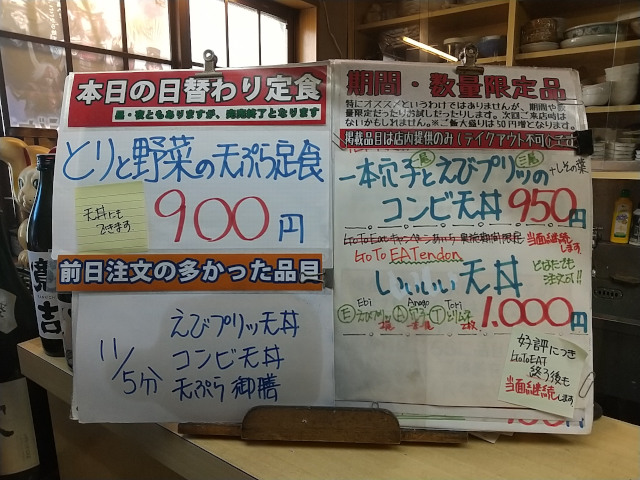 本日の日替わり定食
昼・夜ともありますが、完売終了となります
とりと野菜の天ぷら定食
天丼にも
できます
900円
前日注文の多かった品目
11/5分
えびプリッ天丼
コンビ天丼
天ぷら御膳
期間・数量限定品
特にオススメというわけではありませんが、期間や数
量限定だったりお試しだったりします。次回ご来店時は
ないかもしれません。※ご飯大盛りは50円増となります。
掲載品目は店内提供のみ(テイクアウト不可
一本穴子とえびプリッの
+しその葉
コンビ天丼 950円
GoToEatキャンペーン
当面継続
します。
GoTo EATendon
いいいい天丼
どなたでも
注文可!!
Ebi Anago Tori
Ⓔえびプリッ Ⓐ穴子 Ⓣとりムネ
2尾 一本 2枚
1.000円
好評につき
GoToEAT
終了後も
当面継続します